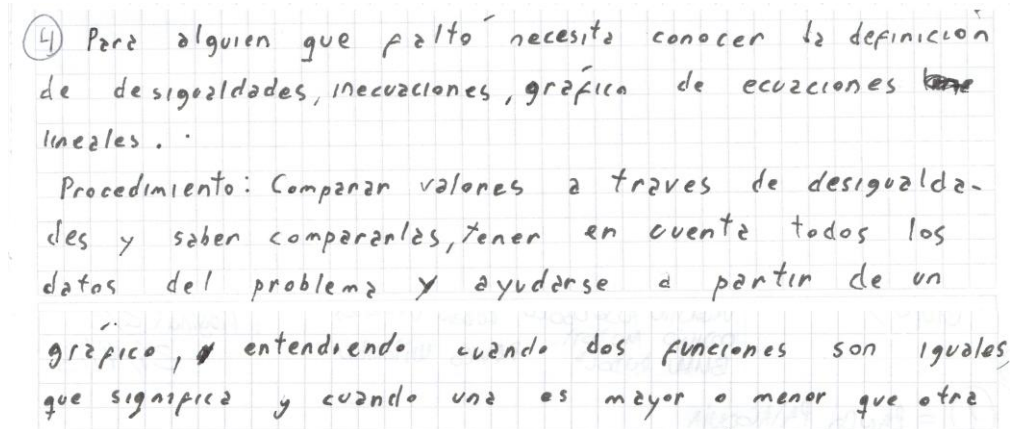 4) Para alguien que faltó necesita conocer la definición
de desigualdades, inecuaciones, gráfica de ecuaciones
lineales.
Procedimiento: Comparar valores a traves de desigualda-
des y saber compararlas, tener en cuenta todos los
datos del problema y ayudarse a partir de un
gráfico, entendiendo cuando dos funciones son iguales,
que significa y cuando una es mayor o menor que otra